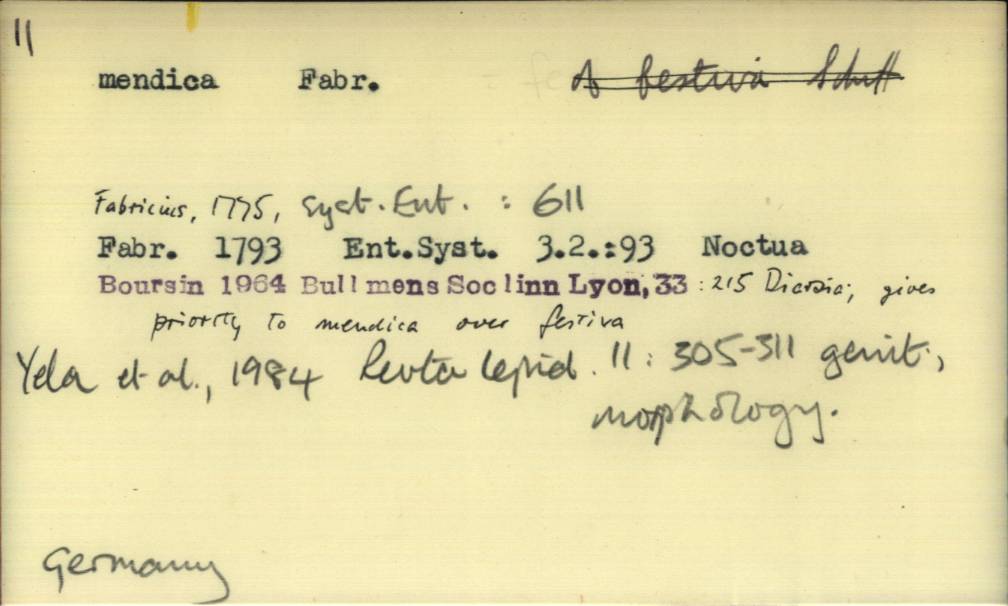 11
mendica Fabr. of festiva Schiff
Fabricius, 1775, Syst. Ent. : 611
Fabr. 1793 Ent.Syst. 3.2.:93 Noctua
Boursin 1964 Bull mens Soc linn Lyon, 33 : 215 Diarsia; gives
priority to mendica over festiva
Yela et al., 1984 Revta lepid. 11: 305-311 genit.,
morphology.
Germany